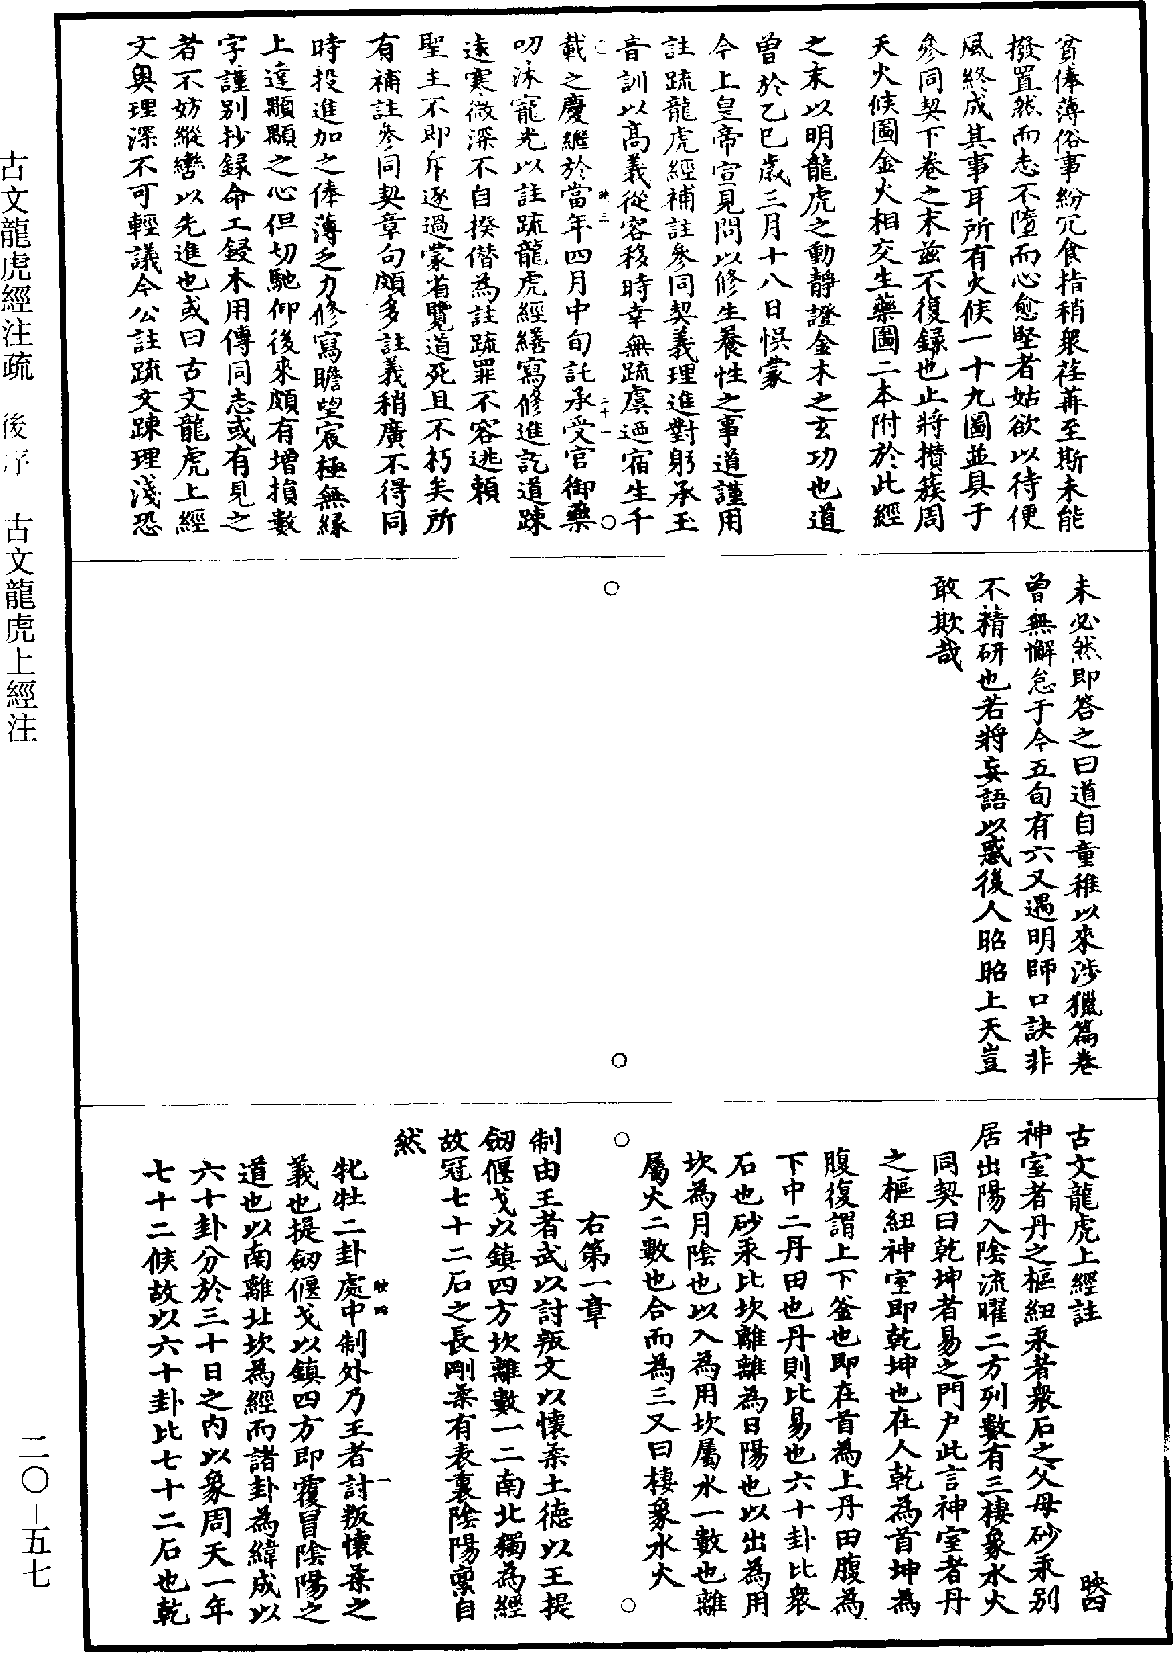 貧俸薄俗事紛冗食指稍衆荏苒至斯未能
撥置然而志不墮而心愈堅者姑欲以待便
風終成其事耳所有火候一十九圖並具于
參同契下卷之末茲不復録也止將攢蔟周
天火候圖金火相交生藥圖二本附於此經
之末以明龍虎之動靜證金木之玄功也道
曾於乙巳歲三月十八日悞蒙
今上皇帝宣見問以修生養性之事道謹用
註疏龍虎經補註參同契義理進對躬承玉
音訓以高義從容移時幸無疏虞迺宿生千
載之慶繼於當年四月中旬託承受官御藥
叨沐寵光以註疏龍虎經繕寫修進訖道踈
遠寒微深不自揆僭為註疏罪不容逃頼
聖主不即斥逐過蒙省覽道死且不朽矣所
有補註參同契章句頗多註義稍廣不得同
時投進加之俸薄乏力修寫瞻望宸極無緣
上達顒顒之心但切馳仰後來頗有増損數
字謹别抄録命工鋟木用傳同志或有見之
者不妨縱轡以先進也或曰古文龍虎上經
文奥理深不可輕議今公註疏文踈理淺恐
映三
二十一
未必然即答之曰道自童稚以來涉獵篇卷
曾無懈怠于今五旬有六又遇明師口訣非
不精研也若將妄語以惑後人昭昭上天豈
敢欺哉
古文龍虎上經註
映四
神室者丹之樞紐汞者衆石之父母砂汞别
居出陽入陰流曜二方列數有三棲象水火
同契曰乾坤者易之門户此言神室者丹
之樞紐神室即乾坤也在人乾為首坤為
腹復謂上下釜也即在首為上丹田腹為
下中二丹田也丹則比易也六十卦比衆
石也砂汞比坎離離為日陽也以出為用
坎為月陰也以入為用坎屬水一數也離
屬火二數也合而為三又曰棲象水火
右第一章
制由王者武以討叛文以懷柔土德以王提
劒偃戈以鎮四方坎離數一二南北獨為經
故冠七十二石之長剛柔有表裏陰陽稟自
然
牝牡二卦處中制外乃王者討叛懷柔之
義也提劒偃戈以鎮四方即覆冒陰陽之
道也以南離北坎為經而諸卦為緯成以
六十卦分於三十日之内以象周天一年
七十二候故以六十卦比七十二石也乾
映四
一
古文龍虎經注疏 後序 古文龍虎上經注
二〇-五七